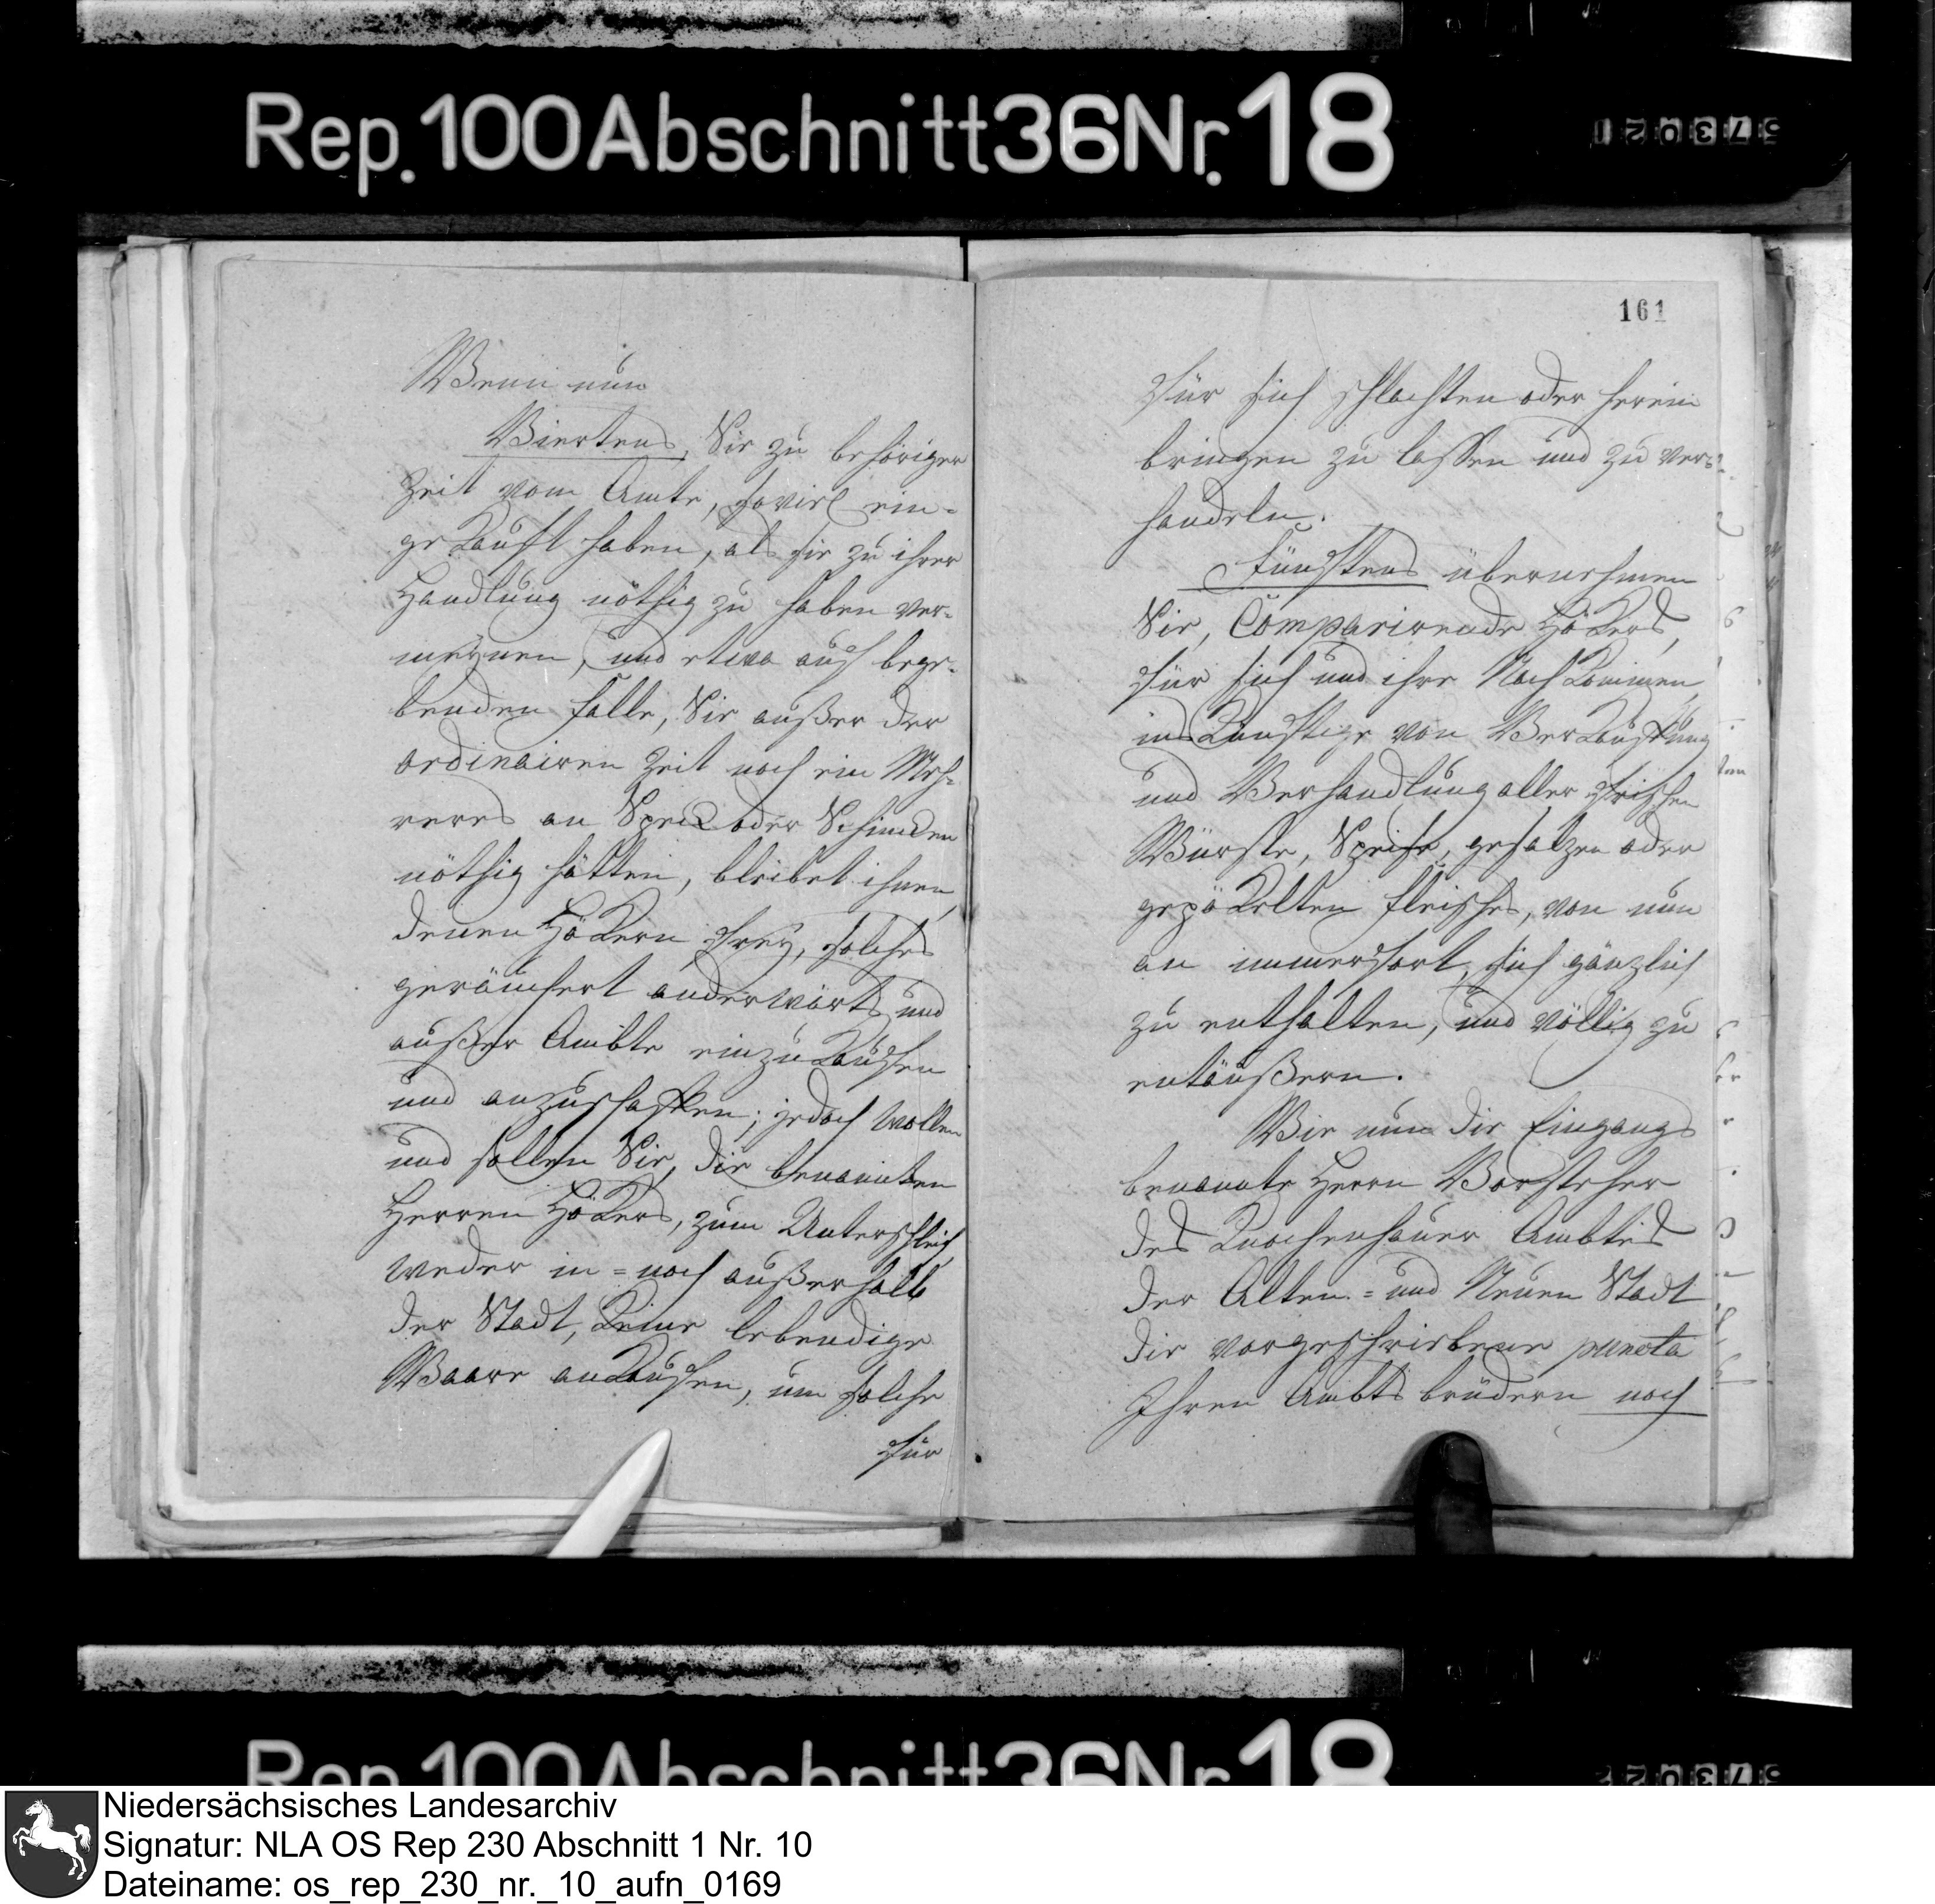 Rep. 100 Abschnitt 36 Nr. 18
Wenn nun
Viertens, Sie zu behöriger
Zeit vom Amte, soviel ein-
gekauft haben, als sie zu ihrer
Handlung nöthig zu haben ver-
meynen, und etwa auf bege-
benden Falle, Sie außer der
ordinairen Zeit noch ein Meh-
reres an Speck oder Schincken
nöthig hätten, bleibet ihnen,
denen Hökern frey, solches
geräuchert anderwärts und
außer Ambte einzukaufen
und anzuschaffen; jedoch wollen
und sollen Sie, die benannten
Herren Hökers, zum Unterschleif,
weder in = noch außerhalb
der Stadt, keine lebendige
Waare ankaufen, um solche
für
161
für sich schlachten oder herein
bringen zu lassen und zu ver-
handeln.
Fünftens übernehmen
Sie, Comparirende Hökers,
für sich und ihre Nachkommen,
ins künftige von Verkauffung
und Verhandlung aller frischen
Würste, Speise, gesalzen oder
gepökelten Fleisches, von nun
an immerfort, sich gänzlich
zu enthalten, und völlig zu
entäußern.
Wie nun die Eingangs
benannte Herrn Vorsteher
des Knochenhauer Ambtes
der Alten = und Neuen Stadt
die vorgeschriebene puncta
Ihren Ambts brüdern noch
Niedersächsisches Landesarchiv
Signatur: NLA OS Rep 230 Abschnitt 1 Nr. 10
Dateiname: os_rep_230_nr._10_aufn_0169